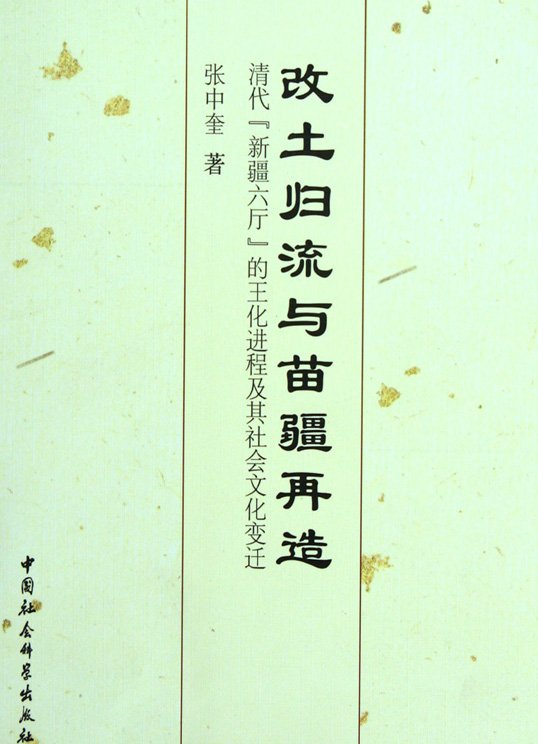 改土归流与苗疆再造
清代『新疆六厅』的王化进程及其社会文化变迁
张中奎 著
中国社会科学出版社